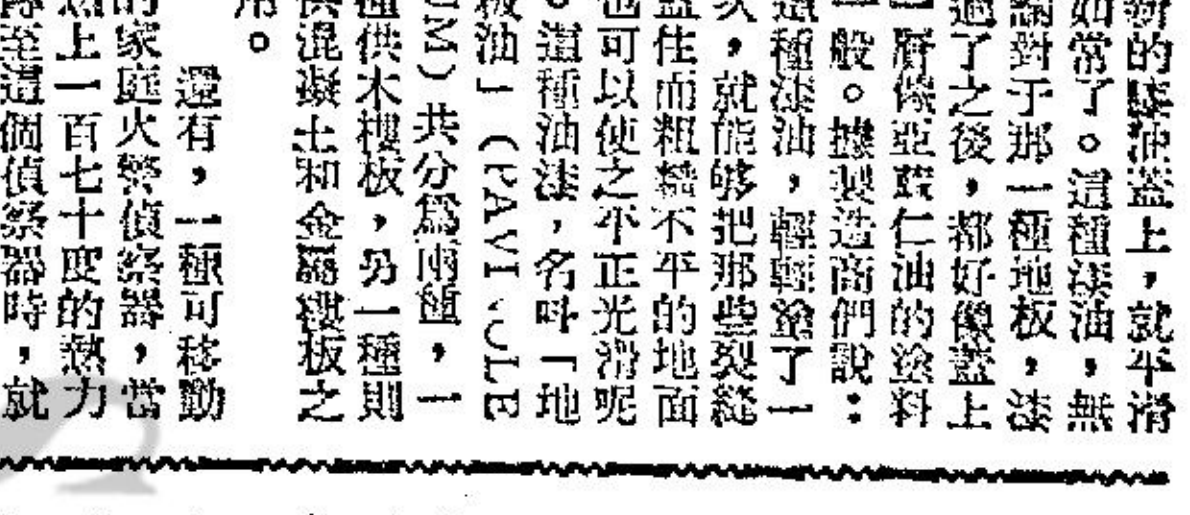 新的漆油蓋上，就平滑
如常了。這種漆油，無
論對于那一種地板，漆
過了之後，都好像蓋上
一層像亞蔴仁油的塗料
一般。據製造商們說：
這種漆油，輕輕塗了一
次，就能够把那些裂縫
蓋住而粗糙不平的地面
也可以使之平正光滑呢
。這種油漆，名叫「地
板油」（PAVI-OLE
UM）共分爲兩種，一
種供木樓板，另一種則
供混凝土和金屬樓板之
用。
還有，一種可移動
的家庭火警偵察器，當
熱上一百七十度的熱力
降至這個偵察器時，就